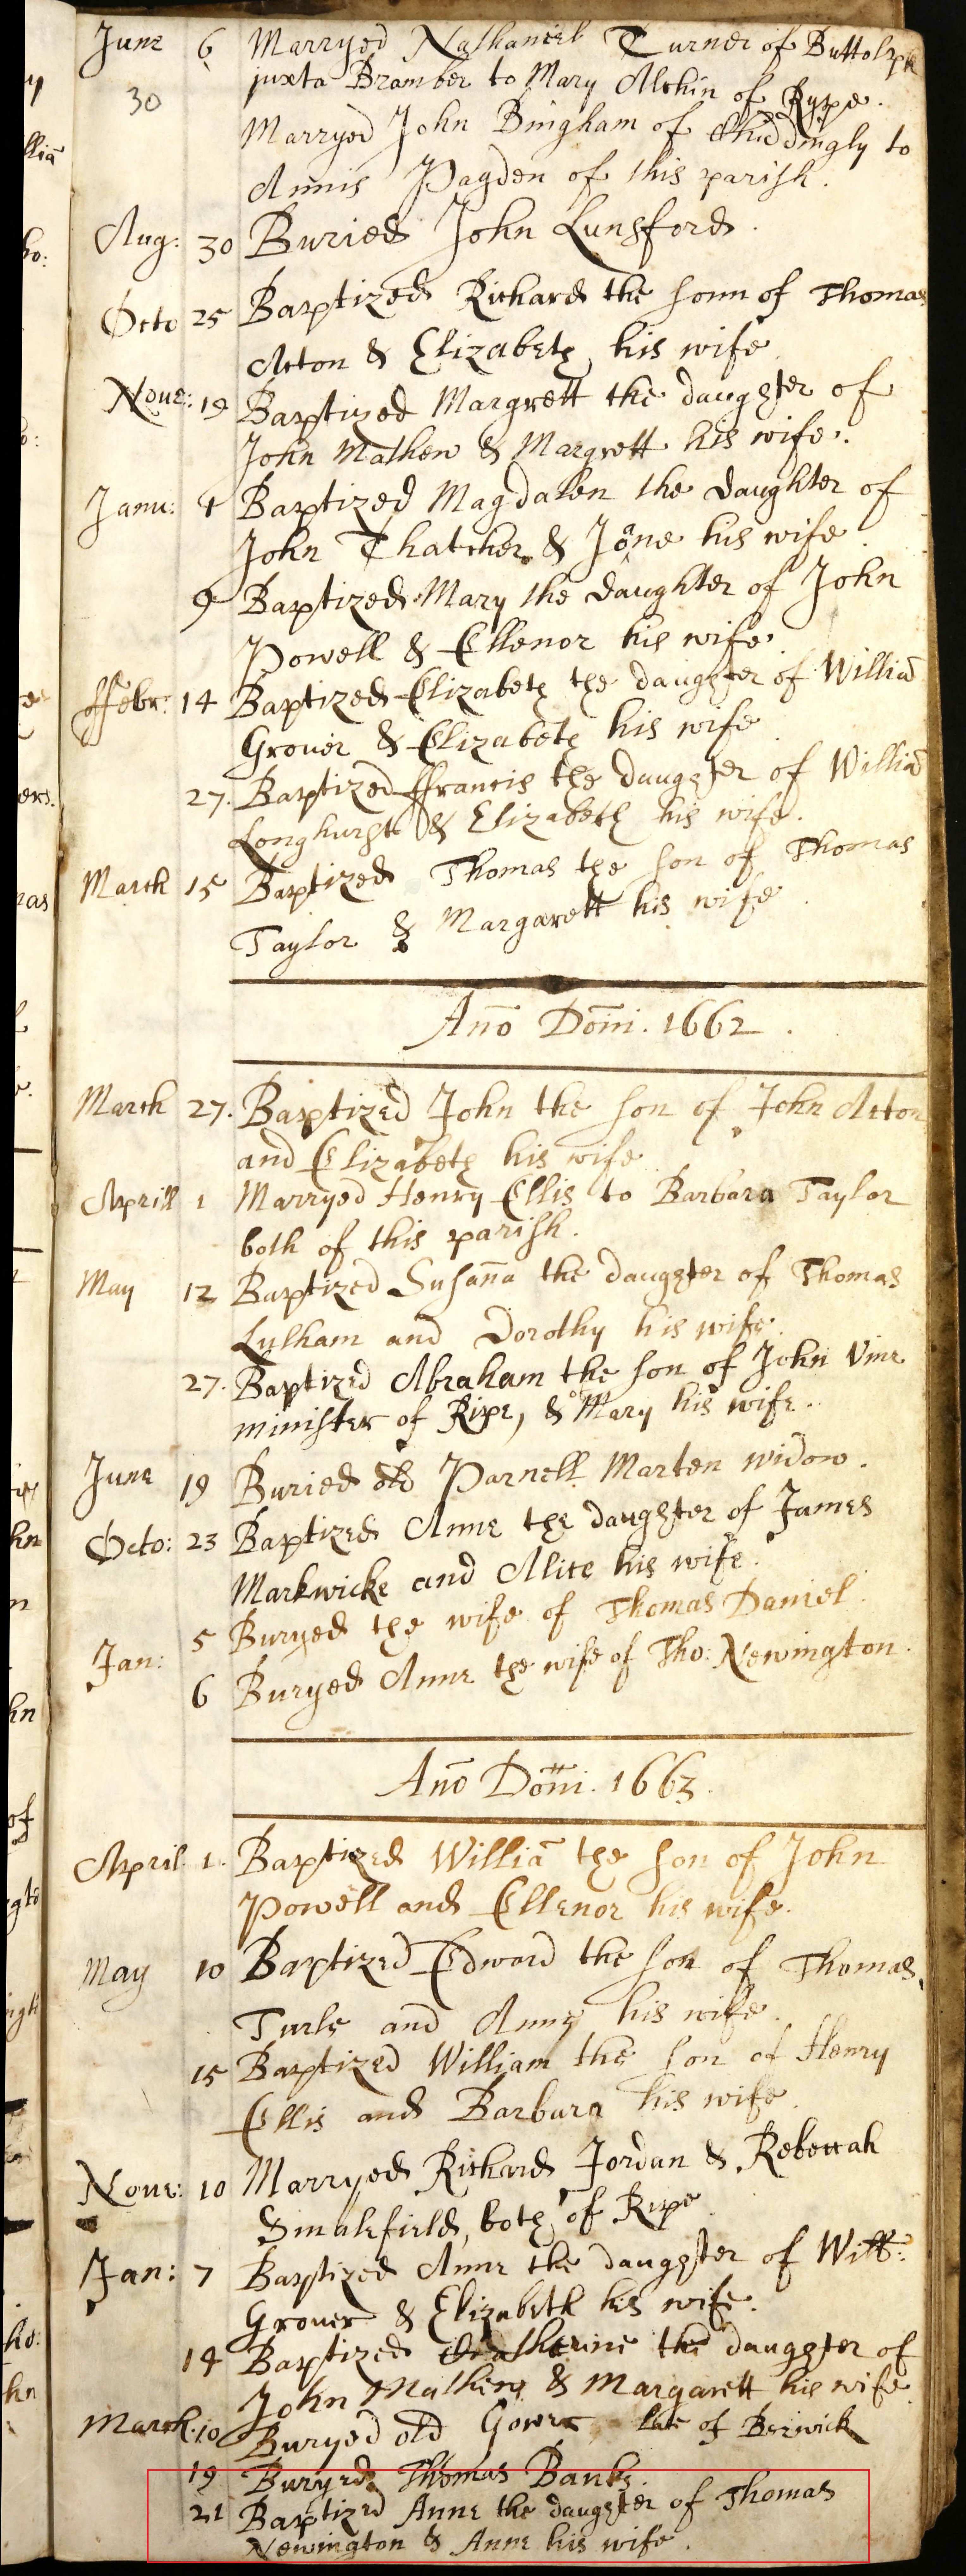 June 6 Marryed Nathaniel Turner of Buttolph
juxta Bramber to Mary Alchin of Rype.
30 Marryed John Bingham of Chiddingly to
Annis Pagden of this parish.
Aug: 30 Buried John Lunsford.
Octo 25 Baptized Richard the sonn of Thomas
Acton & Elizabeth his wife
Nove: 19 Baptized Margrett the daughter of
John Mathew & Margrett his wife.
Janu: 1 Baptized Magdalen the daughter of
John Thatcher & Jone his wife.
9 Baptized Mary the daughter of John
Powell & Ellenor his wife.
ffebr: 14 Baptized Elizabeth the daughter of Williā
Grover & Elizabeth his wife.
27. Baptized ffrancis the daughter of Williā
Longhurst & Elizabeth his wife.
March 15 Baptized Thomas the son of Thomas
Taylor & Margarett his wife.
Ano̅ Dom̅i. 1662.
March 27. Baptized John the son of John Acton
and Elizabeth his wife
Aprill 1 Marryed Henry Ellis to Barbara Taylor
both of this parish.
May 12 Baptized Susan̅a the daughter of Thomas
Lulham and Dorothy his wife.
27. Baptized Abraham the son of John Vine
minister of Ripe, & Mary his wife.
June 19 Buried old Parnell Marten widow.
Octo: 23 Baptized Anne the daughter of James
Markwicke and Alice his wife.
Jan: 5 Buryed the wife of Thomas Daniel.
6 Buryed Anne the wife of Tho: Newington.
Ano̅ Dom̅i. 1663.
April 1. Baptized Williā the son of John
Powell and Ellenor his wife.
May 10 Baptized Edward the son of Thomas
Turle and Anne his wife.
15 Baptized William the son of Henry
Ellis and Barbara his wife.
Nove: 10 Marryed Richard Jordan & Rebeccah
Smalefield, both of Ripe
Jan: 7 Baptized Anne the daughter of Will:
Grover & Elizabeth his wife.
14 Baptized Catherine the daughter of
John Mathew & Margarett his wife.
March 10 Buryed old Gower late of Berwick
19 Buryed Thomas Banks.
21 Baptized Anne the daughter of Thomas
Newington & Anne his wife.